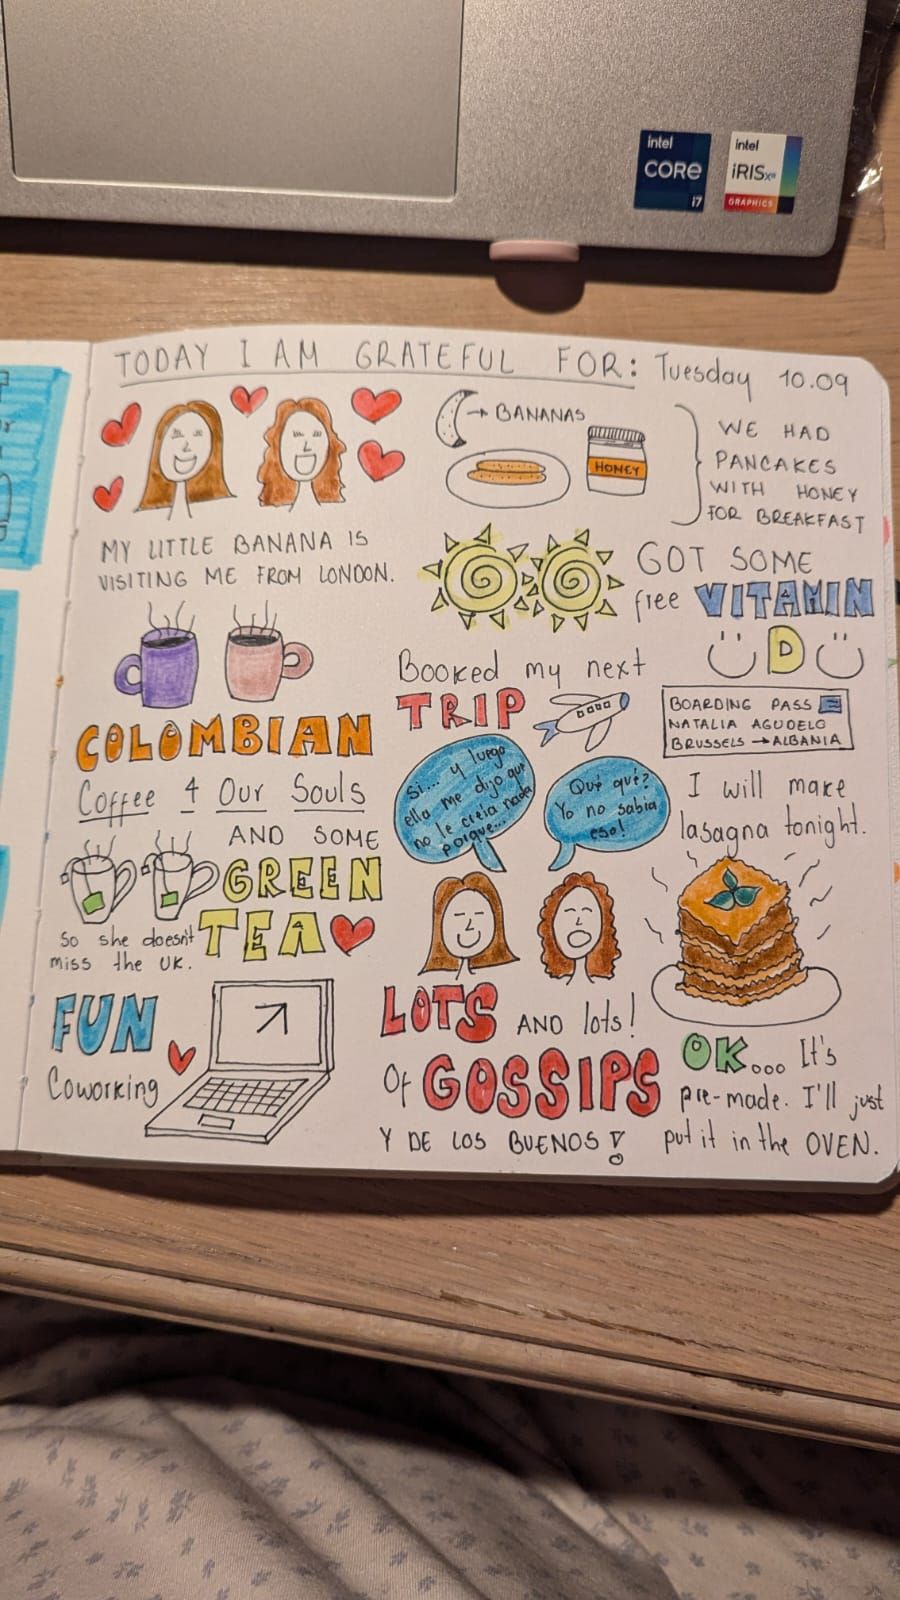 intel
CORE
i7
intel
iRISxe
GRAPHICS
TODAY I AM GRATEFUL FOR: Tuesday 10.09
MY LITTLE BANANA IS
VISITING ME FROM LONDON.
→ BANANAS
HONEY
WE HAD
PANCAKES
WITH HONEY
FOR BREAKFAST
GOT SOME
free VITAMIN
D
COLOMBIAN
Coffee 4 Our Souls
AND SOME
GREEN
TEA
So she doesn't
miss the UK.
Booked my next
TRIP
BOARDING PASS
NATALIA AGUDELO
BRUSSELS → ALBANIA
Si... y luego
ella me dijo que
no le creía nada
porque...
Qué qué?
Yo no sabía
eso!
LOTS AND lots!
Of GOSSIPS
Y DE LOS BUENOS!
I will make
lasagna tonight.
OK... It's
pre-made. I'll just
put it in the OVEN.
FUN
Coworking